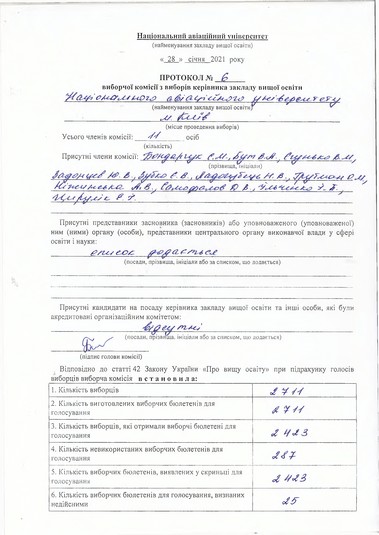 Національний авіаційний університет
(найменування закладу вищої освіти)
« 28 » січня 2021 року
ПРОТОКОЛ № 6
виборчої комісії з виборів керівника закладу вищої освіти
Національного авіаційного університету
(найменування закладу вищої освіти)
м. Київ
(місце проведення виборів)
Усього членів комісії: 11 осіб
(кількість)
Присутні члени комісії: Бондарчук С.М., Бут В.А.,
(прізвища, ініціали)
Задонцев Ю.В., Зубко Є.В.,
Ніжинська А.В., Самофалов Д.В., Ільченко

Присутні представники засновника (засновників) або уповноваженого (уповноваженої)
ним (ними) органу (особи), представники центрального органу виконавчої влади у сфері
освіти і науки:
список додається
(посади, прізвища, ініціали або за списком, що додається)
Присутні кандидати на посаду керівника закладу вищої освіти та інші особи, які були
акредитовані організаційним комітетом:
відсутні
(посади, прізвища, ініціали або за списком, що додається)
(підпис голови комісії)
Відповідно до статті 42 Закону України «Про вищу освіту» при підрахунку голосів
виборців виборча комісія встановила:
1. Кількість виборців 2711
2. Кількість виготовлених виборчих бюлетенів для
голосування 2711
3. Кількість виборців, які отримали виборчі бюлетені для
голосування 2423
4. Кількість невикористаних виборчих бюлетенів для
голосування 287
5. Кількість виборчих бюлетенів, виявлених у скриньці для
голосування 2423
6. Кількість виборчих бюлетенів для голосування, визнаних
недійсними 25